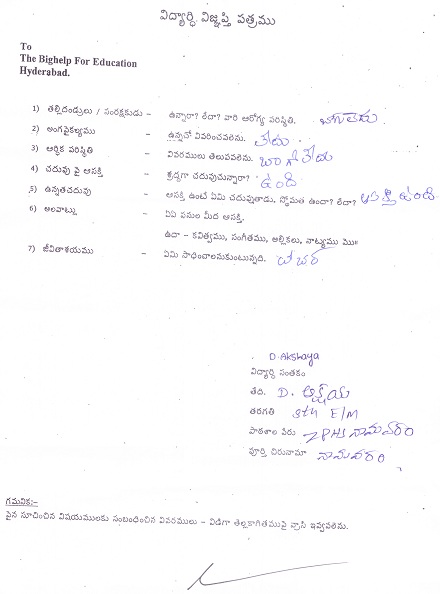 విద్యార్ధి విజ్ఞప్తి పత్రము
To
The Bighelp For Education
Hyderabad.
1) తల్లిదండ్రులు / సంరక్షకుడు - ఉన్నారా? లేదా? వారి ఆరోగ్య పరిస్థితి. బాగాలేదు
2) అంగవైకల్యము - ఉన్నచో వివరించవలెను. లేదు
3) ఆర్ధిక పరిస్థితి - వివరములు తెలుపవలెను. బాగాలేదు
4) చదువు పై ఆసక్తి - శ్రద్ధగా చదువుచున్నారా? ఉంది
5) ఉన్నతచదువు - ఆసక్తి ఉంటే ఏమి చదువుతాడు. స్ధోమత ఉందా? లేదా? ఆసక్తి ఉంది
6) అలవాట్లు - ఏఏ పనుల మీద ఆసక్తి.
ఉదా - కవిత్వము, సంగీతము, అల్లికలు, నాట్యము మ॥
7) జీవితాశయము - ఏమి సాధించాలనుకుంటున్నది. టీచర్
D. Akshaya
విద్యార్ధి సంతకం
తేది. D. అక్షయ
తరగతి 9th E/M
పాఠశాల పేరు ZPHS నామవరం
పూర్తి చిరునామా నామవరం
గమనిక:-
పైన సూచించిన విషయములకు సంబంధించిన వివరములు - విడిగా తెల్లకాగితముపై వ్రాసి ఇవ్వవలెను.